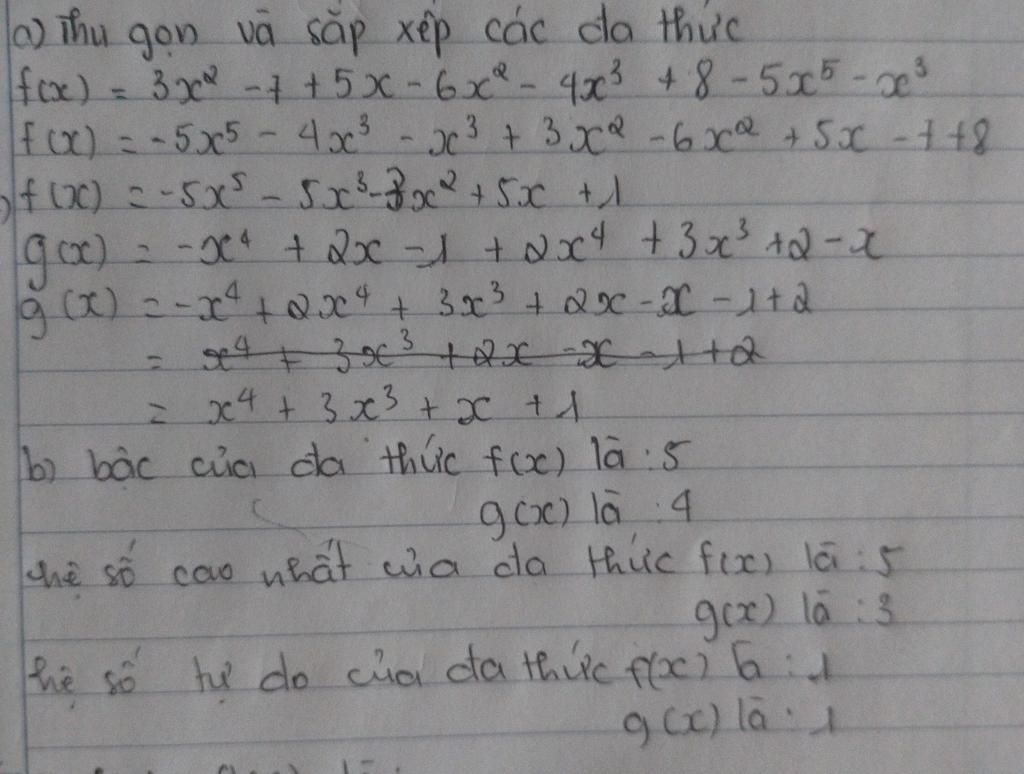 a) Thu gọn và sắp xếp các đa thức
f(x) = 3x² - 7 + 5x - 6x² - 4x³ + 8 - 5x⁵ - x³
f(x) = -5x⁵ - 4x³ - x³ + 3x² - 6x² + 5x - 7 + 8
f(x) = -5x⁵ - 5x³ - 3x² + 5x + 1
g(x) = -x⁴ + 2x - 1 + 2x⁴ + 3x³ + 2 - x
g(x) = -x⁴ + 2x⁴ + 3x³ + 2x - x - 1 + 2
= x⁴ + 3x³ + 2x - x - 1 + 2
= x⁴ + 3x³ + x + 1
b) bậc của đa thức f(x) là : 5
g(x) là : 4
hệ số cao nhất của đa thức f(x) là : 5
g(x) là : 3
hệ số tự do của đa thức f(x) là : 1
g(x) là : 1